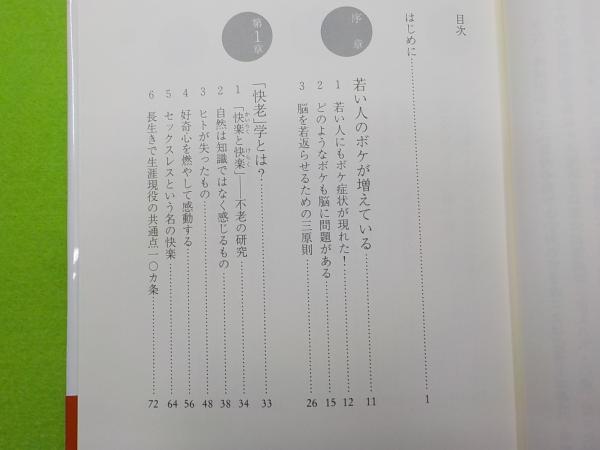 目次
はじめに……………1
序章
若い人のボケが増えている……………11
1 若い人にもボケ症状が現れた!……………12
2 どのようなボケも脳に問題がある……………15
3 脳を若返らせるための三原則……………26
第1章
「快老」学とは?……………33
1 「快楽と快楽」――不老の研究……………34
かいらく けらく
2 自然は知識ではなく感じるもの……………38
3 ヒトが失ったもの……………48
4 好奇心を燃やして感動する……………56
5 セックスレスという名の快楽……………64
6 長生きで生涯現役の共通点一〇カ条……………72